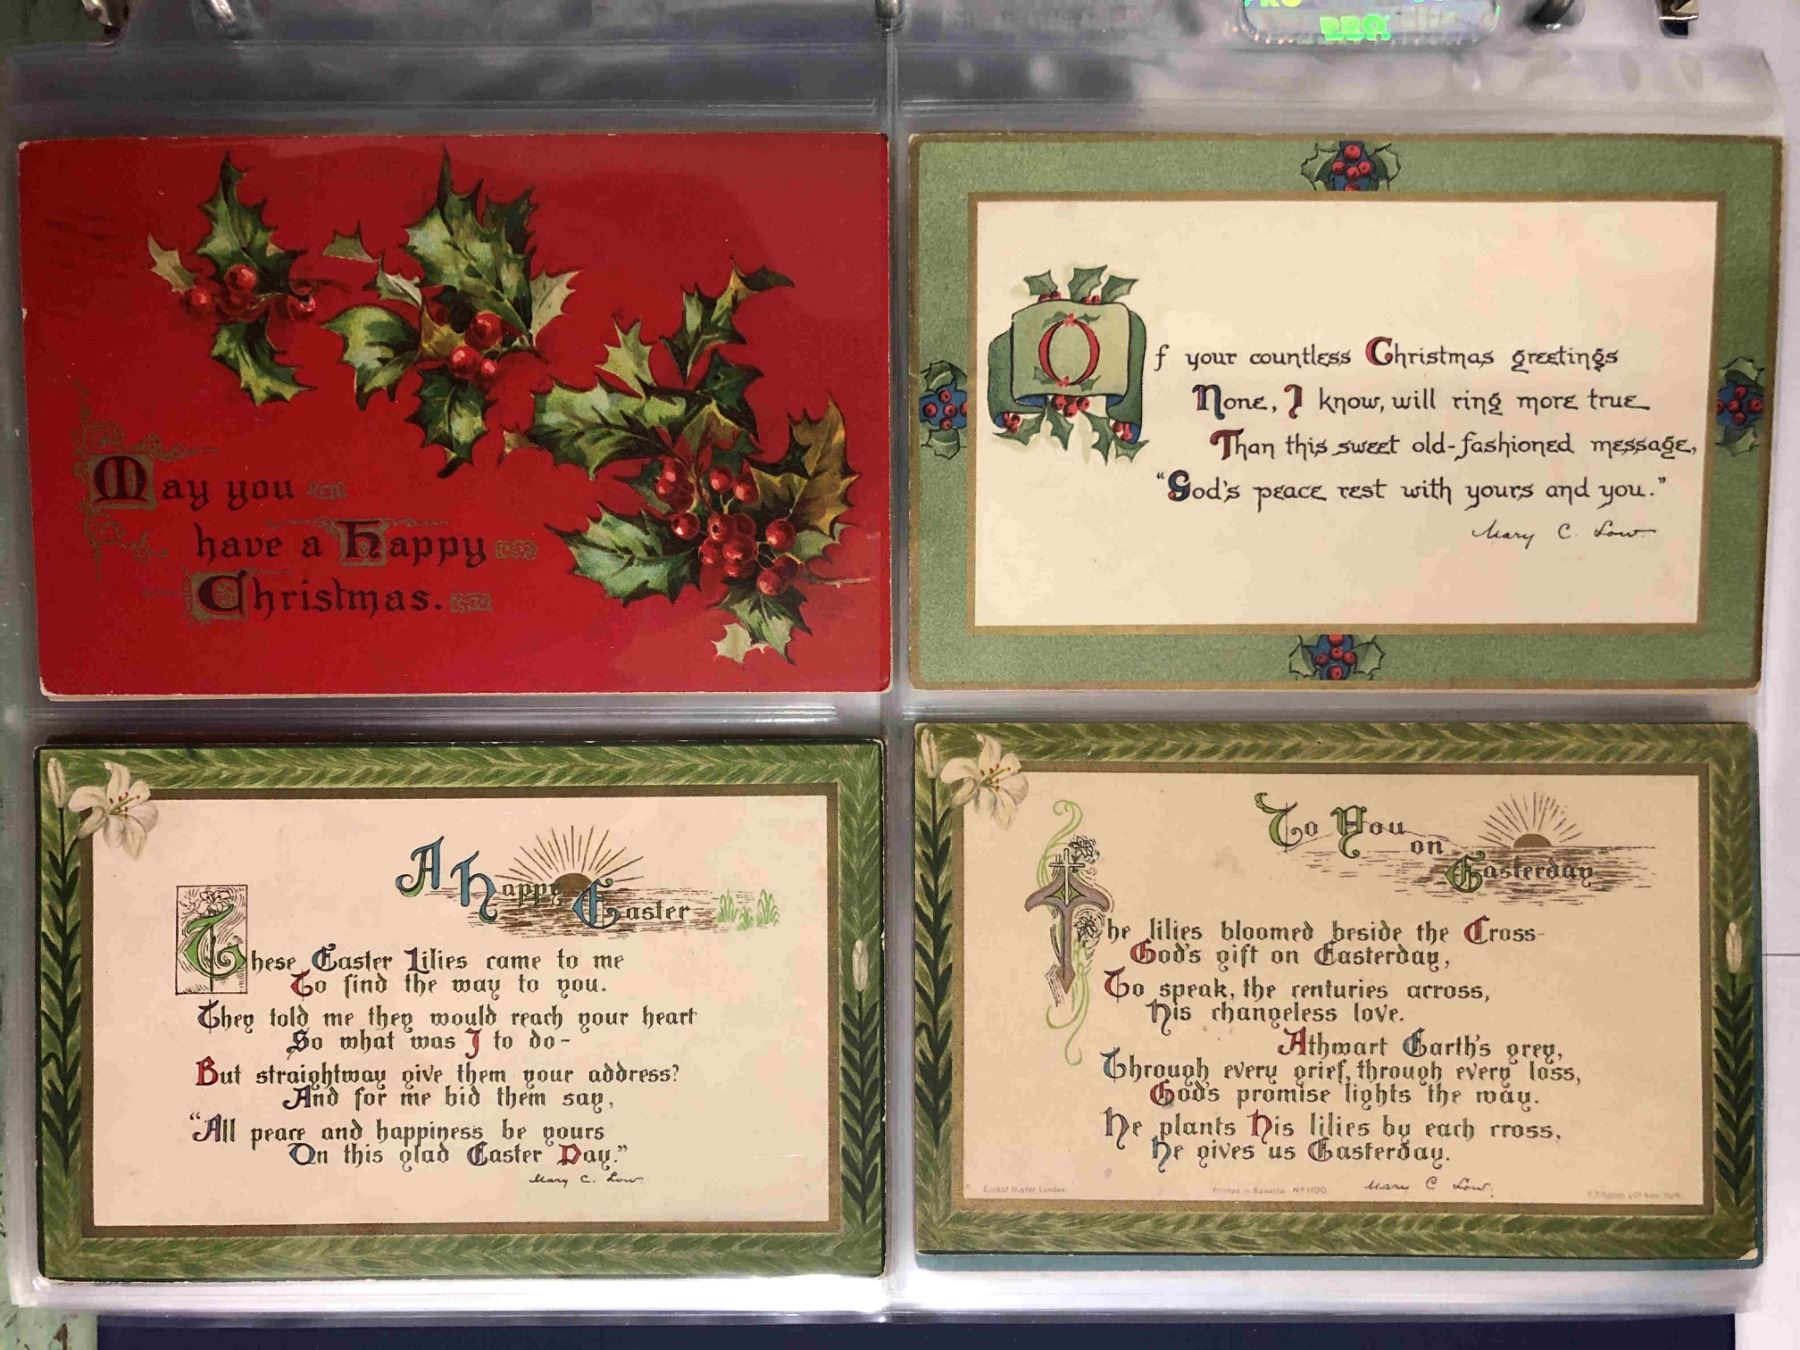 PRO
May you
have a Happy
Christmas.
Of your countless Christmas greetings
None, I know, will ring more true
Than this sweet old-fashioned message,
"God's peace rest with yours and you."
Mary C. Low
A Happy Easter
These Easter Lilies came to me
To find the way to you.
They told me they would reach your heart
So what was I to do-
But straightway give them your address?
And for me bid them say,
"All peace and happiness be yours
On this glad Easter Day."
Mary C. Low
To You
on
Easterday
The lilies bloomed beside the Cross-
God's gift on Easterday,
To speak, the centuries across,
His changeless love.
Athwart Earth's grey,
Through every grief, through every loss,
God's promise lights the way.
He plants His lilies by each cross,
He gives us Easterday.
Mary C Low.
Ernest Nister London
Printed in Bavaria. No 1100
New York